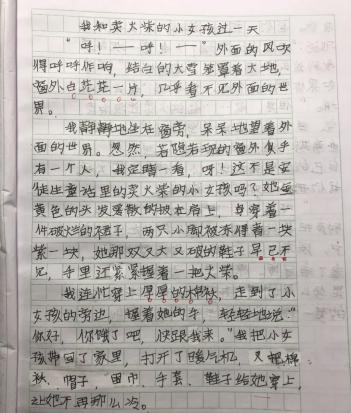 我和卖火柴的小女孩过一天
“呼！——呼！——”外面的风吹
得呼呼作响，洁白的大雪笼罩着大地，
窗外白茫茫一片，几乎看不见外面的世
界。
我静静地坐在窗旁，呆呆地望着外
面的世界。忽然，若隐若现的窗外似乎
有一个人，我定睛一看，呀！这不是安
徒生童话里的卖火柴的小女孩吗？她金
黄色的头发零散的披在肩上，身穿着一
件破烂的裙子，两只小脚被冻得青一块
紫一块，她那双又大又破的鞋子早已不
见，手里还紧紧握着一把火柴。
我连忙穿上厚厚的棉袄，走到了小
女孩的旁边，握着她的手，轻轻地说：“
你好，你饿了吧，快跟我来。”我把小女
孩带回了家里，打开了暖气机，又把棉
袄、帽子，围巾、手套、鞋子给她穿上，
让她不再那么冷。